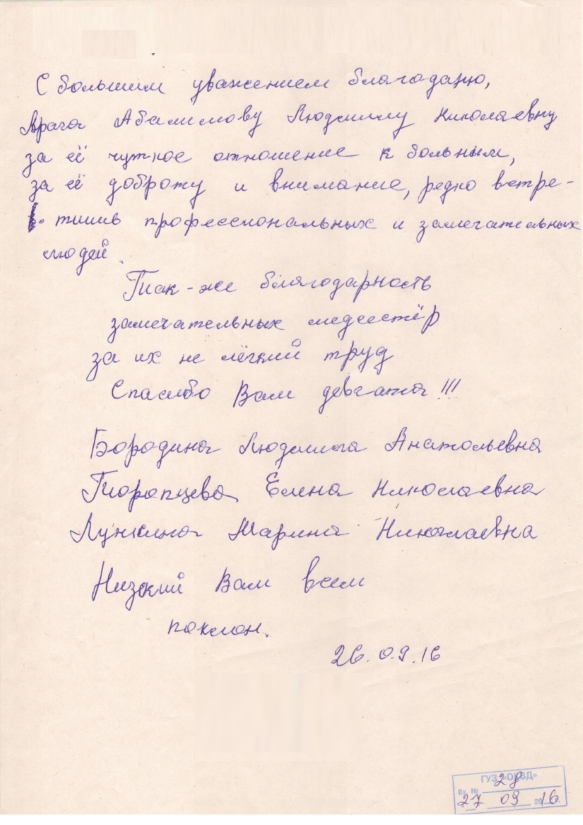 С большим уважением благодарю,
врача Абалимову Людмилу Николаевну
за её чуткое отношение к больным,
за её доброту и внимание, редко встре-
тишь профессиональных и замечательных
людей.
Так-же благодарность
замечательных медсестёр
за их не лёгкий труд
Спасибо Вам девчата!!!
Бородина Людмила Анатольевна
Торопцева Елена Николаевна
Лункина Марина Николаевна
Низкий Вам всем
поклон.
26.09.16
ГУЗ
Вх. № 28
27 09 2016